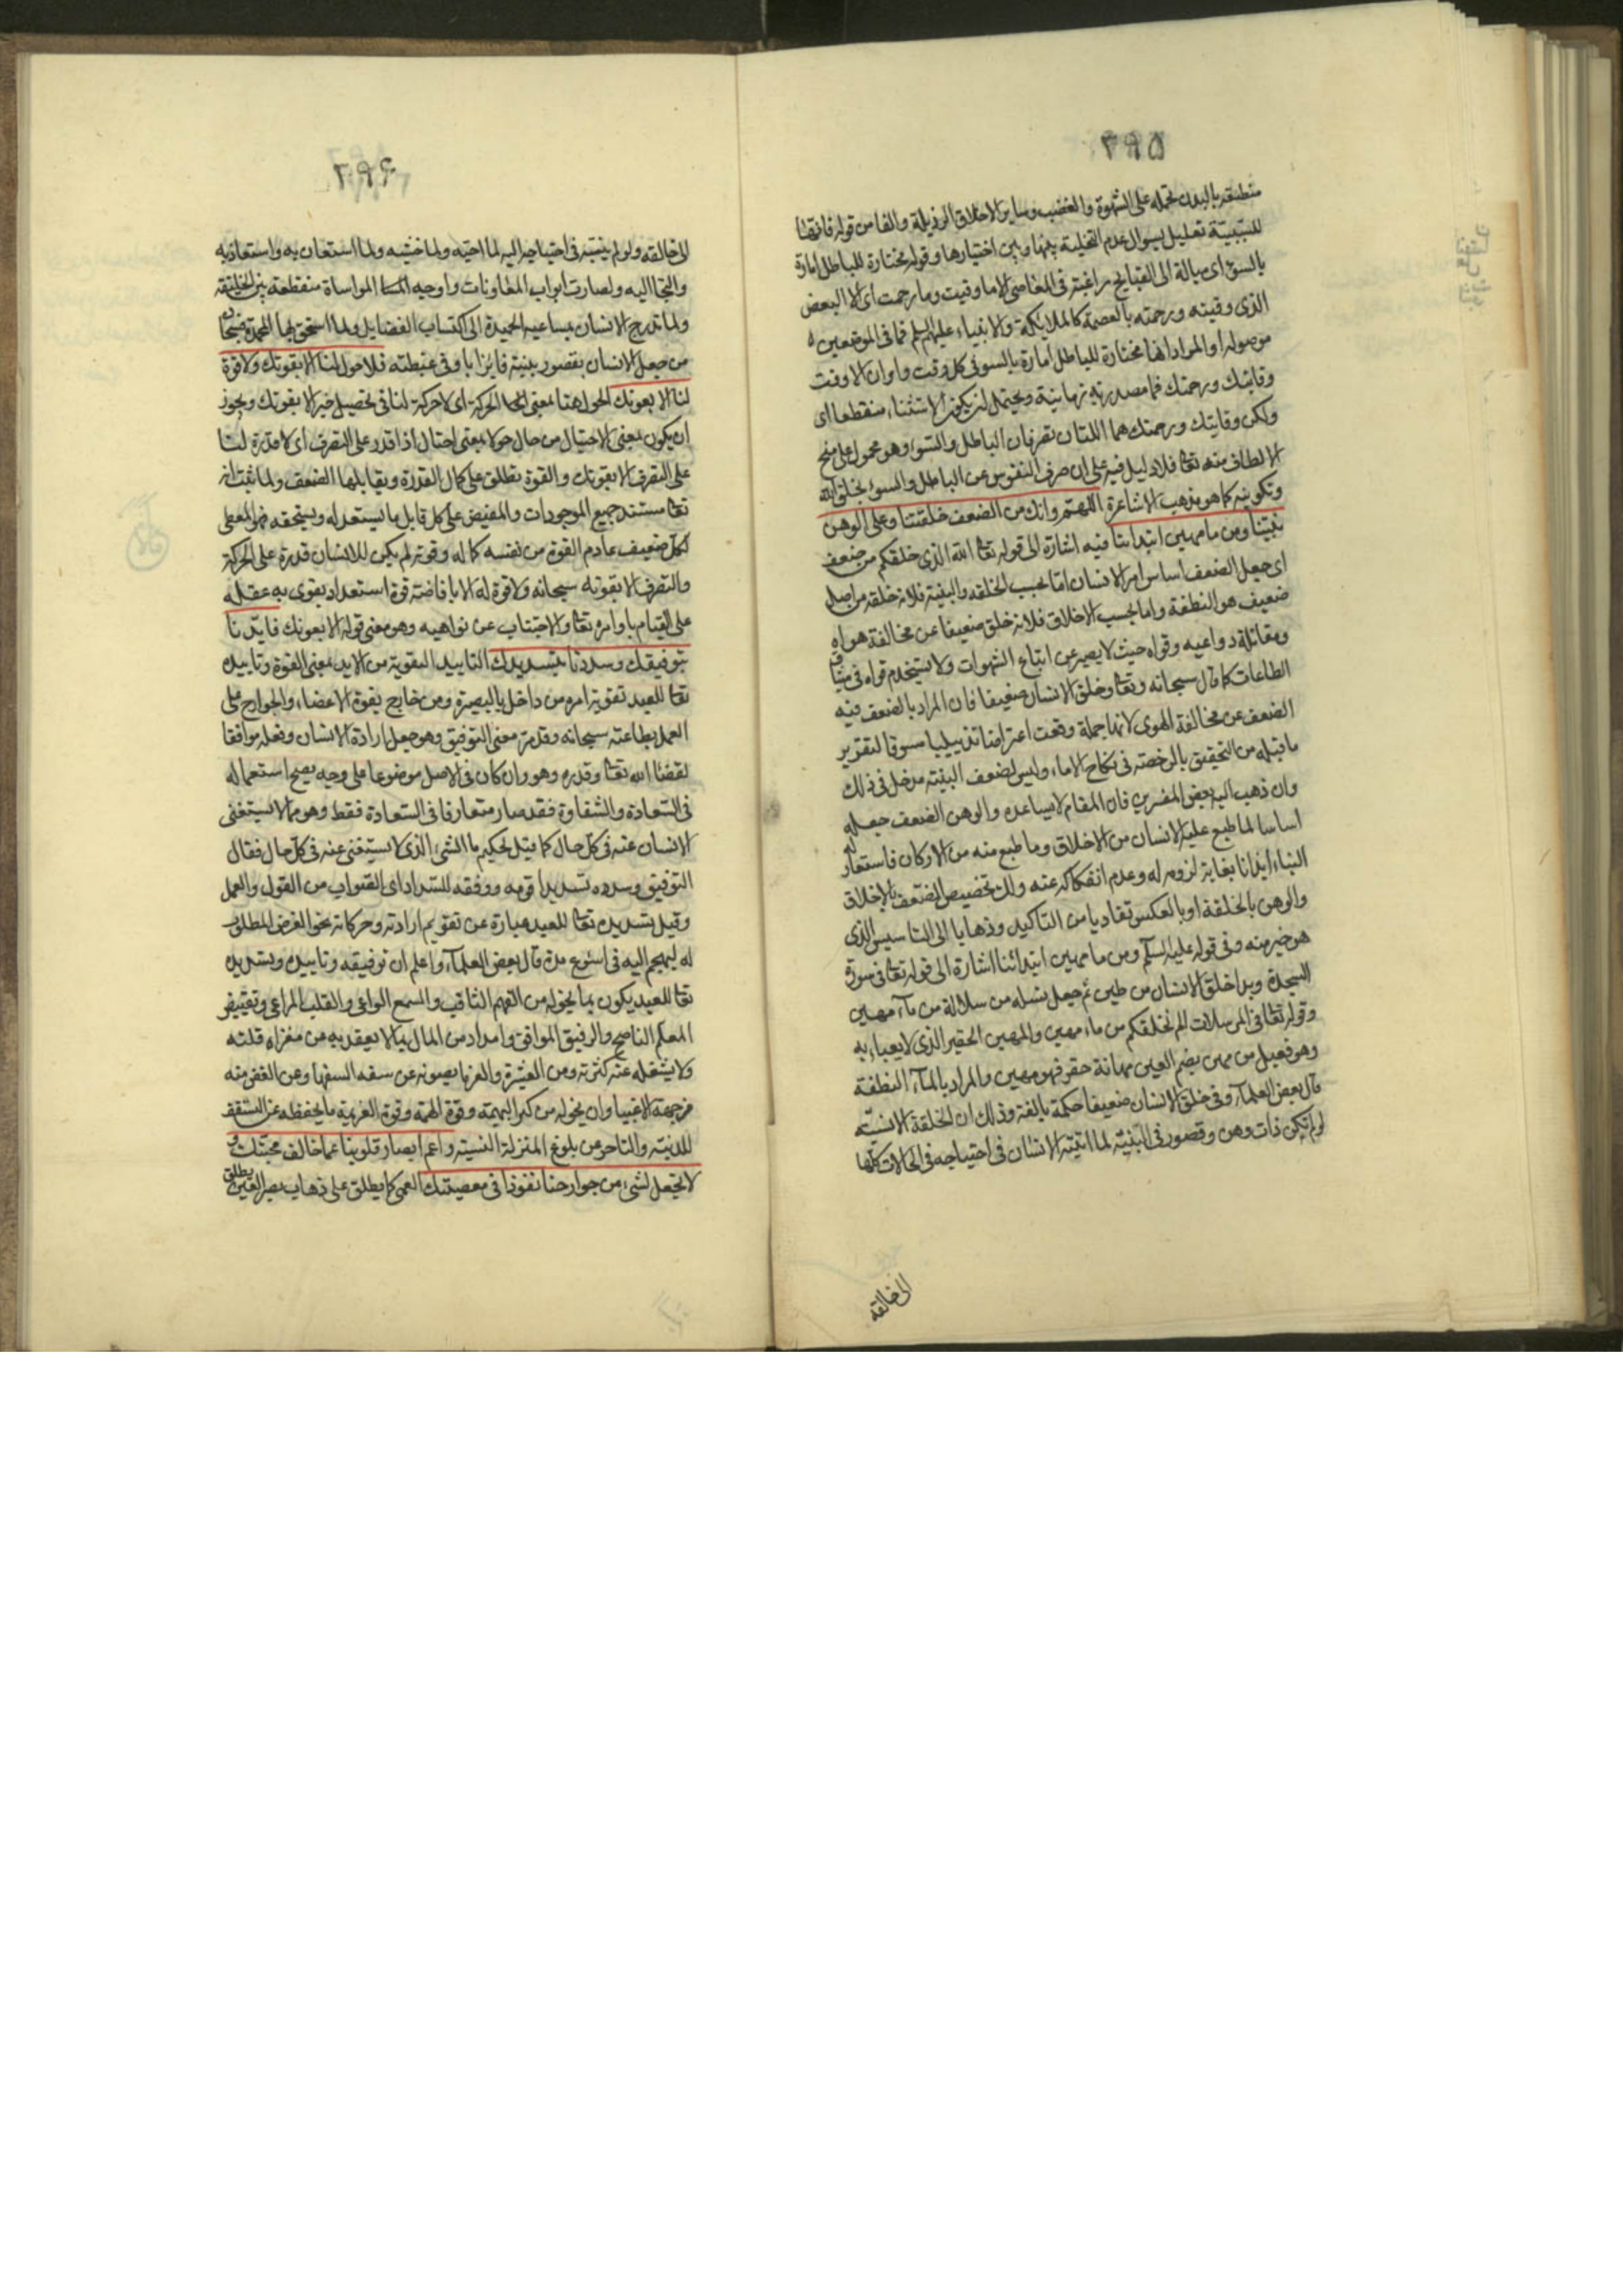 ٢٩٥
متعلقه بالبدن تحمله على الشهوة والغضب وساير الاخلاق الرذيلة والفا من قوله فانها
للسببية تعليل لسوال عدم التخلية بينها وبين اختيارها وقوله مختارة للباطل امارة
بالسوء اى ميالة الى القبايح راغبة فى المعاصى الا ما وقيت وما رحمت اى الا البعض
الذى وقيته ورحمته بالعصمة كالملائكة والانبياء عليهم السلم فما فى الموضعين
موصولة او المراد انها مختارة للباطل امارة بالسوء فى كل وقت واوان الا وقت
وقايتك ورحمتك فما مصدرية زمانية ويحتمل ان يكون الاستثناء منقطعا اى
ولكن وقايتك ورحمتك هما اللتان تصرفان الباطل والسوء وهو محمول على منح
الالطاف منه تعا فلا دليل فيه على ان صرف النفوس عن الباطل والسوء بخلق الله
وتكوينه كما هو مذهب الاشاعرة اللهم وانك من الضعف خلقتنا وعلى الوهن
بنيتنا ومن ماء مهين ابتداتنا فيه اشارة الى قوله تعا الله الذى خلقكم من ضعف
اى جعل الضعف اساس امر الانسان اما بحسب الخلقه والبنية فلانه خلقه من اصل
ضعيف هو النطفة واما بحسب الاخلاق فلانه خلق ضعيفا عن مخالفة هواه
ومقاتلة دواعيه وقواه حيث لا يصبر عن اتباع الشهوات ولا يستخدم قواه فى مشاق
الطاعات كما قال سبحانه وتعا وخلق الانسان ضعيفا فان المراد بالضعف فيه
الضعف عن مخالفة الهوى لانها جملة وقعت اعتراضا تذييليا مسوقا لتقرير
ما قبله من التحقيق بالرخصة فى نكاح الاماء وليس لضعف البنية مدخل فى ذلك
وان ذهب اليه بعض المفسرين فان المقام لا يساعده والوهن الضعف جعله
اساسا لما طبع عليه الانسان من الاخلاق وما طبع منه من الاركان فاستعار له
البناء ايذانا بغاية لزومه له وعدم انفكاكه عنه ولك تخصيص الضعف بالاخلاق
والوهن بالخلقة او بالعكس تفاديا من التاكيد وذهابا الى التاسيس الذى
هو خير منه وفى قوله عليه السلم ومن ماء مهين ابتداتنا اشارة الى قوله تعا فى سورة
السجدة وبدا خلق الانسان من طين ثم جعل نسله من سلالة من ماء مهين
وقوله تعا فى المرسلات الم نخلقكم من ماء مهين والمهين الحقير الذى لا يعباء به
وهو فعيل من مهن بضم العين مهانة حقر فهو مهين والمراد بالماء النطفة
قال بعض العلماء وفى خلق الانسان ضعيفا حكمة بالغة وذلك ان الخلقة الانسية
لو لم تكن ذات وهن وقصور فى البنية لما انتبه الانسان فى احتياجه فى الحالات كلها
الى خالقه
٢٩۶
الى خالقه ولو لم ينتبه فى احتياجه اليه لما احبه ولما خشيه ولما استعان به واستعاذ به
والتجا اليه ولصارت ابواب المعاونات واوجه المواساة منقطعة بين الخليقه
ولما تدرج الانسان بمساعيه الحميدة الى اكتساب الفضايل ولما استحق بها المحمدة فسبحان
من جعل الانسان بقصور بنيته فايزا باوفى غبطته فلا حول لنا الا بقوتك ولا قوة
لنا الا بعونك الحول هنا بمعنى الحركة اى لا حركة لنا فى تحصيل خير الا بقوتك ويجوز
ان يكون بمعنى الاحتيال من حال حولا بمعنى احتال اذا قدر على التصرف اى لا قدرة لنا
على التصرف الا بقوتك والقوة تطلق على كمال القدرة ويقابلها الضعف ولما ثبت انه
تعا مستند جميع الموجودات والمفيض على كل قابل ما يستعد له ويستحقه فهو المعطى
لكل ضعيف عادم القوة من نفسه كماله وقوته لم يكن للانسان قدرة على الحركة
والتصرف الا بقوته سبحانه ولا قوة له الا بافاضته قوة استعداد يقوى به عقله
على القيام باوامره تعا والاجتناب عن نواهيه وهو معنى قوله الا بعونك فايدنا
بتوفيقك وسددنا بتسديدك التاييد التقوية من الايد بمعنى القوة وتاييده
تعا للعبد تقوية امره من داخل بالبصيرة ومن خارج بقوة الاعضاء والجوارح على
العمل بطاعته سبحانه وقد مر معنى التوفيق وهو جعل ارادة الانسان وفعله موافقا
لقضاء الله تعا وقدره وهو وان كان فى الاصل موضوعا على وجه يصح استعماله
فى السعادة والشقاوة فقد صار متعارفا فى السعادة فقط وهو مما لا يستغنى
الانسان عنه فى كل حال كما قيل لحكيم ما الشىء الذى لا يستغنى عنه فى كل حال فقال
التوفيق وسدده تسديدا قومه ووفقه للسداد اى الصواب من القول والعمل
وقيل تسديده تعا للعبد عبارة عن تقويم ارادته وحركاته نحو الغرض المطلوب
له ليهجم اليه فى اسرع مدة قال بعض العلماء واعلم ان توفيقه وتاييده وتسديده
تعا للعبد يكون بما يخوله من الفهم الثاقب والسمع الواعى والقلب المراعى وتقييض
المعلم الناصح والرفيق الموافق وامداد من المال بما لا يقعد به عن مغزاه قلته
ولا يشغله عنه كثرته ومن العشيرة والعز ما يصونه عن سفه السفها وعن الغض منه
من جهة الاغبيا وان يخوله من كبر الهمة وقوة العزيمة ما يحفظه عن التشفف
للدنية والتاخر عن بلوغ المنزلة السنية واعم ابصار قلوبنا عما خالف محبتك و
لا تجعل لشىء من جوارحنا نفوذا فى معصيتك العمى كما يطلق على ذهاب بصر العين يطلق